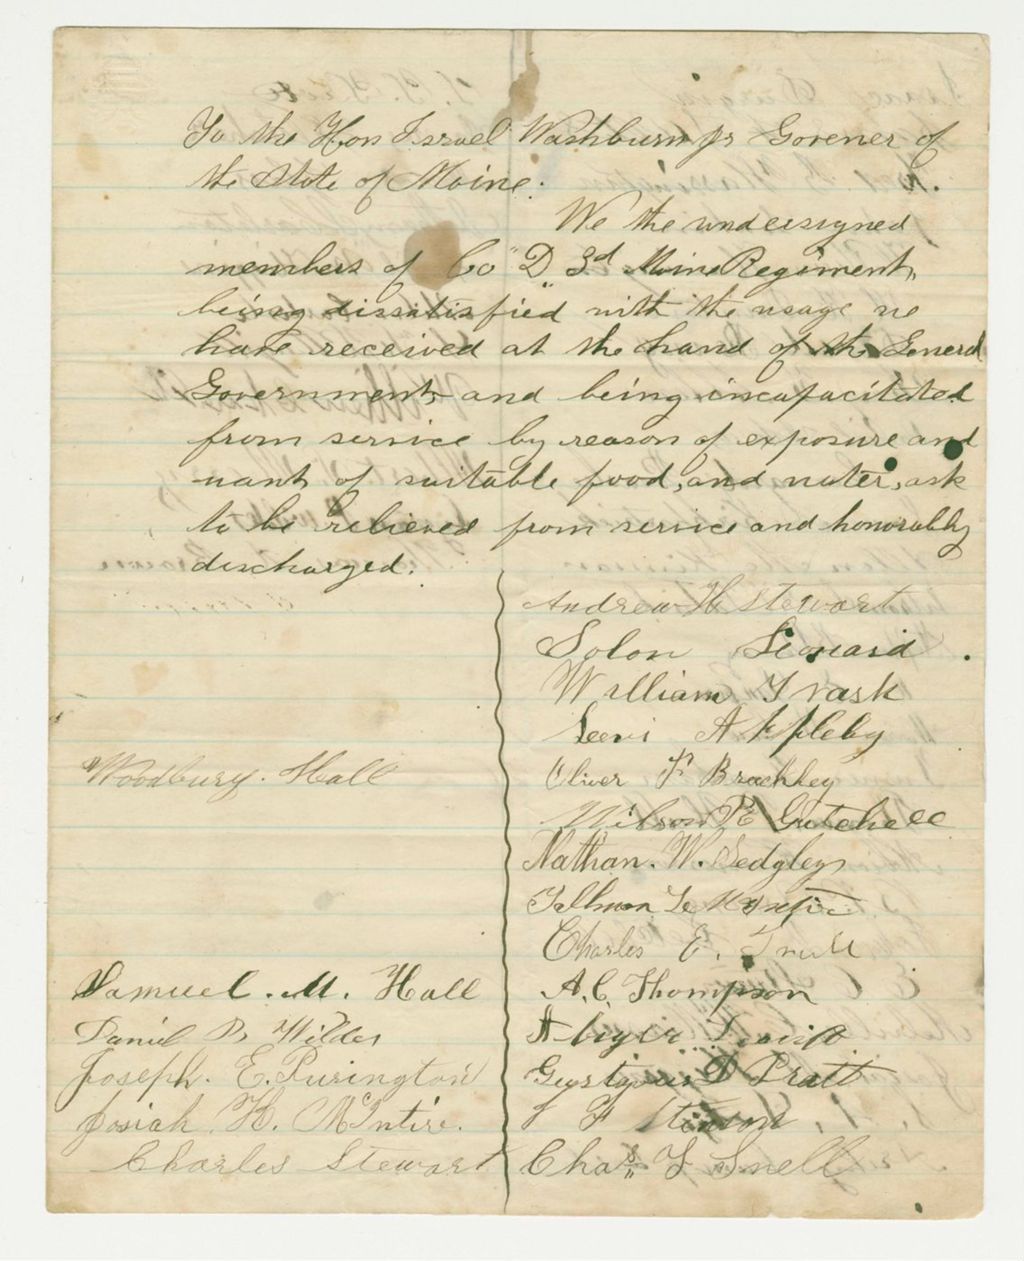 To the Hon Israel Washburn jr Govener of
the State of Maine.
We the undersigned
members of Co "D" 3d Maine Regiment,
being dissatisfied with the usage we
have received at the hand of the General
Government and being incapacitated
from service by reason of exposure and
want of suitable food, and water, ask
to be relieved from service and honorably
discharged.
Andrew H Stewart
Solon Leonard.
William Trask
Levi Appleby
Oliver F Brachley
Wilson P Gutchell
Nathan. W. Sedgley
Tallman
Charles E.
A. C. Thompson
Abizer
Gustavus D Pratt
F Stinson
Chas. F Snell
Woodbury. Hall
Samuel. M. Hall
Daniel B Wildes
Joseph. E. Purington
Josiah. H. McIntire.
Charles Stewart